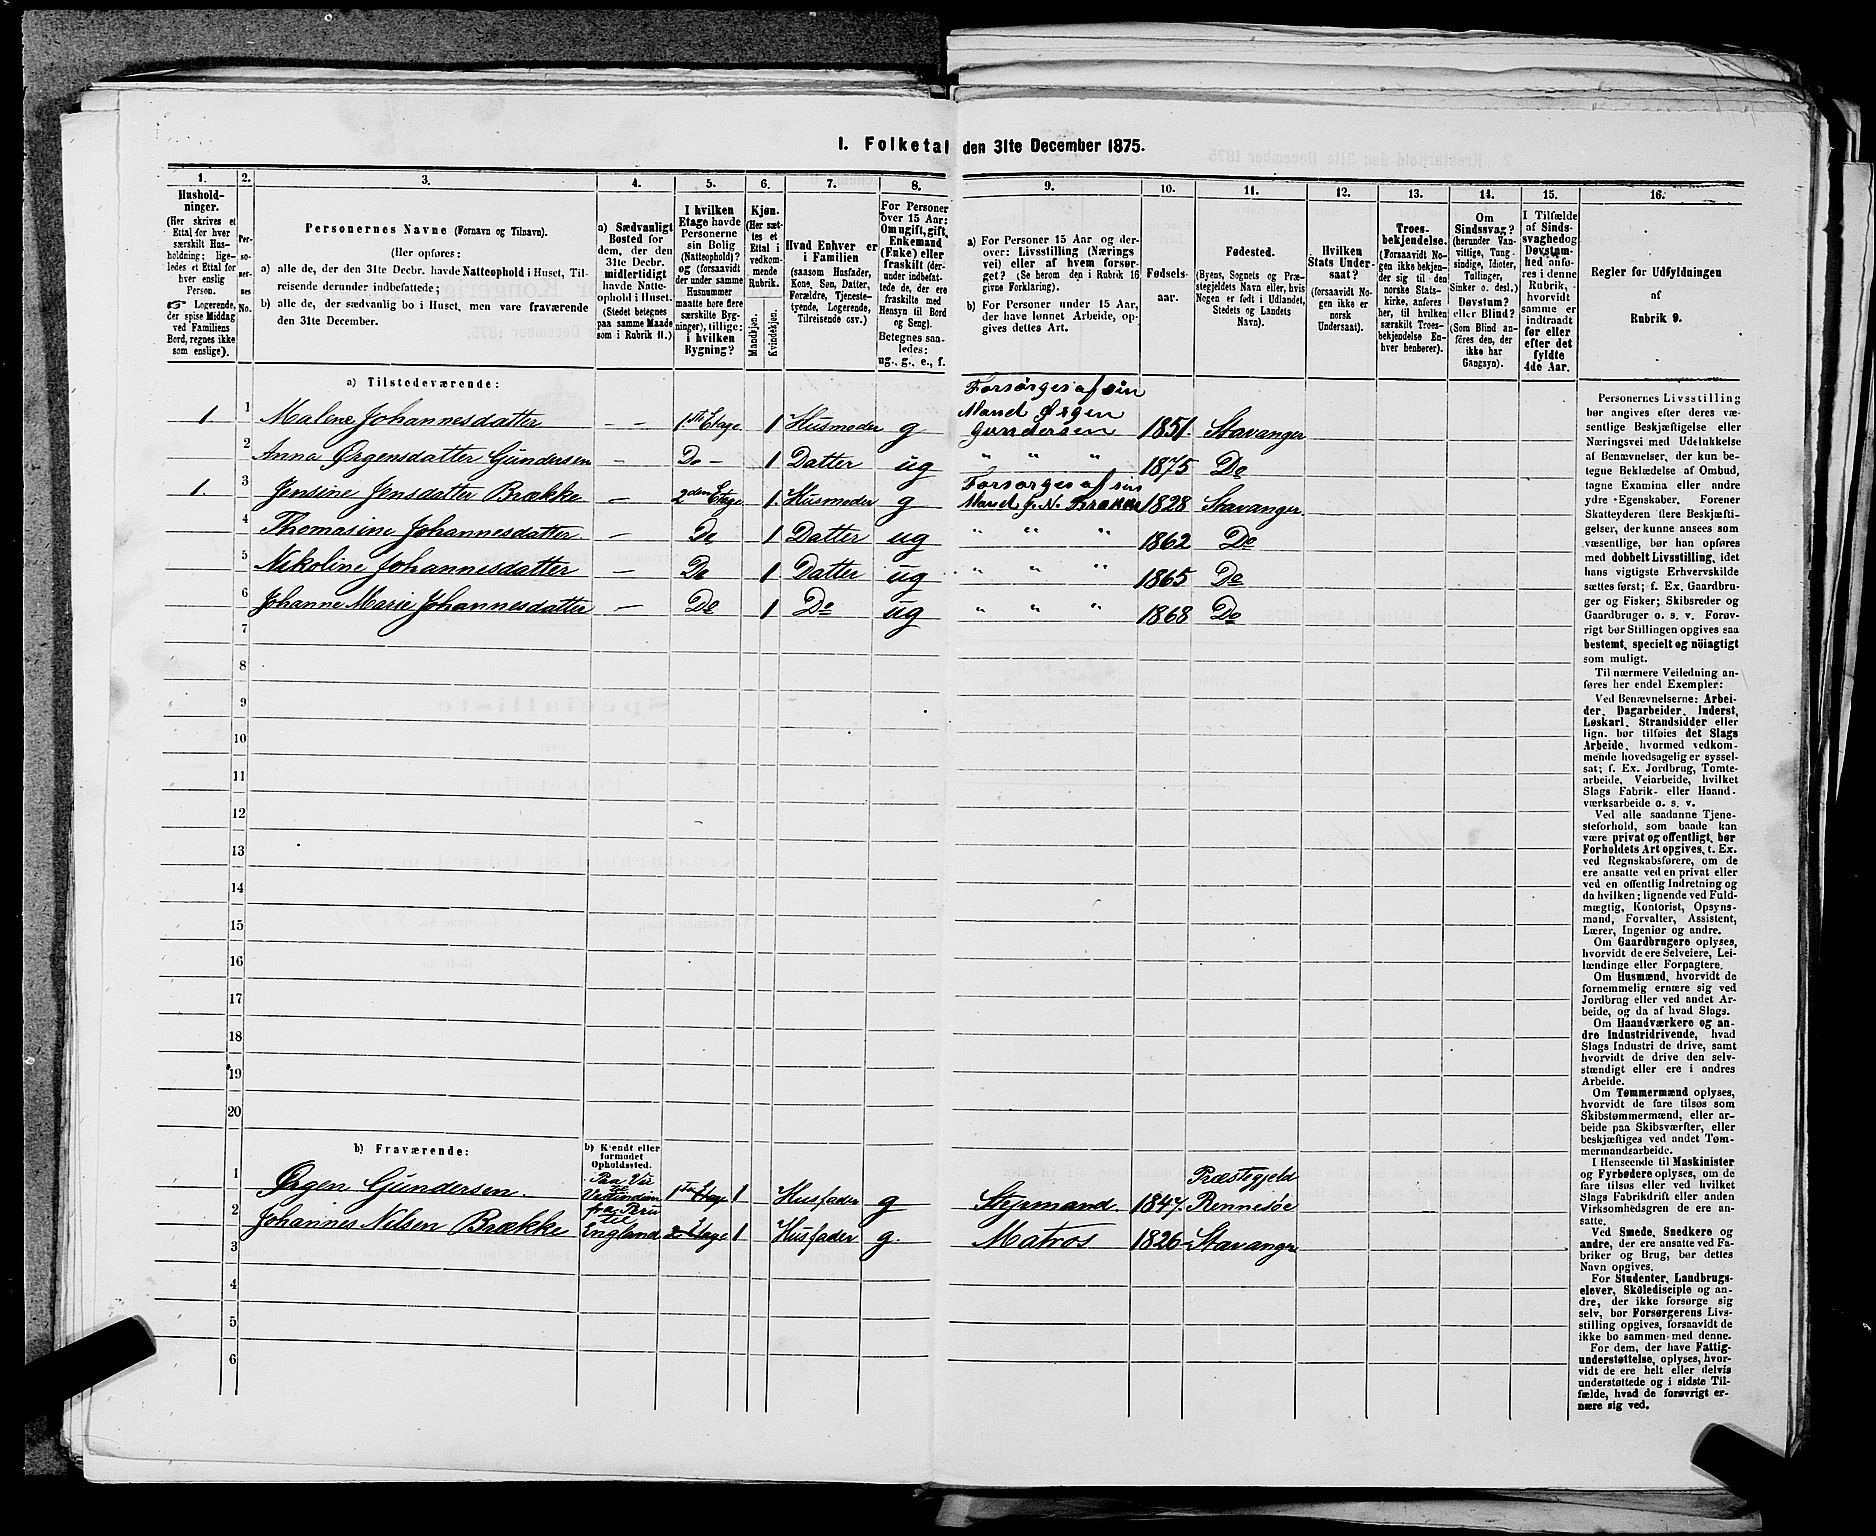 1. Folketal den 31te December 1875.
1.
2.
3.
4.
5.
6.
7.
8.
9.
10.
11.
12.
13.
14.
15.
16.
Hushold-
ninger.
(Her skrives et
Ettal for hver
særskilt Hus-
holdning; lige-
ledes et Ettal for
hver enslig
Person.
☞ Logerende,
der spise Middag
ved Familiens
Bord, regnes ikke
som enslige).
Per-
so-
ner-
nes
No.
Personernes Navne (Fornavn og Tilnavn).
(Her opføres:
a) alle de, der den 31te Decbr. havde Natteophold i Huset, Til-
reisende derunder indbefattede;
b) alle de, der sædvanlig bo i Huset, men vare fraværende
den 31te December.
a) Sædvanligt
Bosted for
dem, der den
31te Decbr.
midlertidigt
havde Natte-
ophold i Huset.
(Stedet betegnes
paa samme Maade
som i Rubrik 11.)
I hvilken
Etage havde
Personerne
sin Bolig
(Natteophold)?
og (forsaavidt
der under samme
Husnummer
maatte høre flere
særskilte Byg-
ninger), tillige:
i hvilken
Bygning?
Kjøn.
(Her sæt-
tes et
Ettal i
vedkom-
mende
Rubrik.
Mandkjøn.
Kvindekjøn.
Hvad Enhver er
i Familien
(saasom Husfader,
Kone, Søn, Datter,
Forældre, Tjeneste-
tyende, Logerende,
Tilreisende osv.)
For Personer
over 15 Aar:
Om ugift, gift,
Enkemand
(Enke) eller
fraskilt (der-
under indbefat-
tede de, der ere
fraskilte med
Hensyn til Bord
og Seng).
Betegnes saa-
ledes:
ug., g., e., f.
a) For Personer 15 Aar og der-
over: Livsstilling (Nærings
vei) eller af hvem forsør-
get? (Se herom den i Rubrik 16
givne Forklaring).
b) For Personer under 15 Aar,
der have lønnet Arbeide, op-
gives dettes Art.
Fødsels-
aar.
Fødested.
(Byens, Sognets og Præ-
stegjeldets Navn eller, hvis
Nogen er født i Udlandet,
Stedets og Landets
Navn).
Hvilken
Stats Under-
saat?
(forsaavidt No-
gen ikke er
norsk
Undersaat).
Troes-
bekjendelse.
(Forsaavidt No-
gen ikke bekjen-
der sig til den
norske Stats-
kirke, anføres
her, til hvilken
særskilt Troes-
bekjendelse En-
hver henhører).
Om
Sindssvag?
(herunder Van-
vittige, Tung-
sindige, Idioter,
Tullinger,
Sinker o. desl.)
Døvstum?
eller Blind?
(Som Blind an-
føres den, der
ikke har
Gangsyn).
I Tilfælde
af Sinds-
svaghed og
Døvstum-
hed anfø-
res i denne
Rubrik,
hvorvidt
samme er
indtraadt
før eller
efter det
fyldte
4de Aar.
Regler for Udfyldningen
af
Rubrik 9.
a) Tilstedeværende:
1. 1 Malene Johannesdatter – 1ste Etage 1 Husmoder g Forsørges af sin Mand Ørgen Gundersen 1851. Stavanger
2 Anna Ørgensdatter Gundersen – Do – 1 Datter ug " " " 1875 Do
1. 3 Jensine Jensdatter Brække – 2den Etage 1. Husmoder g Forsørges af sin Mand J. N. Brække 1828 Stavanger.
4 Thomasine Johannesdatter – Do 1 Datter ug " " " 1862 Do
5 Nikoline Johannesdatter – Do 1 Datter ug " " " 1865 Do
6 Johanne Marie Johannesdatter – Do 1 Do ug " " " 1868 Do
7
8
9
10
11
12
13
14
15
16
17
18
19
20
b) Fraværende:
b) Kjendt eller
formodet
Opholdssted.
1 Ørgen Gundersen. Paa Vei Vestindien 1ste Etage 1 Husfader g Styrmand 1847. Præstegjeld Rennesøe
2 Johannes Nilsen Brække fra Peru til England 2 Etage 1 Husfader g. Matros 1826 – Stavanger
3
4
5
6
Personernes Livsstilling
bør angives efter deres væ-
sentlige Beskjæftigelse eller
Næringsvei med Udelukkelse
af Benævnelser, der kun be-
tegne Beklædelse af Ombud,
tagne Examina eller andre
ydre Egenskaber. Forener
Skatteyderen flere Beskjæfti-
gelser, der kunne ansees som
væsentlige, bør han opføres
med dobbelt Livsstilling, idet
hans vigtigste Erhvervskilde
sættes først; f. Ex. Gaardbru-
ger og Fisker; Skibsreder og
Gaardbruger o. s. v. Forøv-
rigt bør Stillingen opgives saa
bestemt, specielt og nöiagtigt
som muligt.
Til nærmere Veiledning an-
føres her endel Exempler:
Ved Benævnelserne: Arbei-
der, Dagarbeider, Inderst,
Løskarl, Strandsidder eller
lign. bør tilføies det Slags
Arbeide, hvormed vedkom-
mende hovedsagelig er syssel-
sat; f. Ex. Jordbrug, Tomte-
arbeide, Veiarbeide, hvilket
Slags Fabrik- eller Haand-
værksarbeide o. s. v.
Ved alle saadanne Tjene-
steforhold, som baade kan
være privat og offentligt, bør
Forholdets Art opgives, t. Ex.
ved Regnskabsførere, om de
ere ansatte ved en privat eller
ved en offentlig Indretning og
da hvilken; lignende ved Fuld-
mægtig, Kontorist, Opsyns-
mand, Forvalter, Assistent,
Lærer, Ingeniør og andre.
Om Gaardbrugere oplyses,
hvorvidt de ere Selveiere, Lei-
lændinge eller Forpagtere.
Om Husmænd, hvorvidt de
fornemmelig ernære sig ved
Jordbrug eller ved andet Ar-
beide, og da af hvad Slags.
Om Haandværkere og an-
dre Industridrivende, hvad
Slags Industri de drive, samt
hvorvidt de drive den selv-
stændigt eller ere i andres
Arbeide.
Om Tømmermænd oplyses,
hvorvidt de fare tilsøs som
Skibstømmermænd, eller ar-
beide paa Skibsværfter, eller
beskjæftiges ved andet Tøm-
mermandsarbeide.
I Henseende til Maskinister
og Fyrbødere oplyses, om de
fare tilsøs eller ved hvilket
Slags Fabrikdrift eller anden
Virksomhedsgren de ere an-
satte.
Ved Smede, Snedkere og
andre, der ere ansatte ved Fa-
briker og Brug, bør dettes
Navn opgives.
For Studenter, Landbrugs-
elever, Skoledisciple og an-
dre, der ikke forsørge sig
selv, bør Forsørgerens Livs-
stilling opgives, forsaavidt de
ikke bo sammen med denne.
For dem, der have Fattig-
understøttelse, oplyses, hvor-
vidt de ere helt eller delvis
understøttede og i sidste Til-
fælde, hvad de forøvrigt er-
nære sig ved.